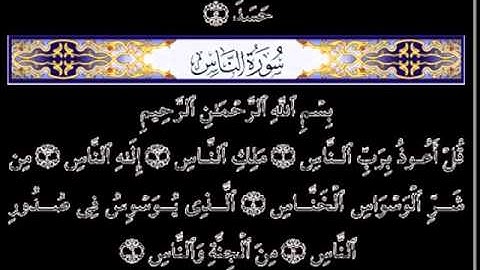 حَسَدَ ۝٥
سُورَةُ النَّاسِ
بِسْمِ ٱللَّهِ ٱلرَّحْمَٰنِ ٱلرَّحِيمِ
قُلْ أَعُوذُ بِرَبِّ ٱلنَّاسِ ۝١ مَلِكِ ٱلنَّاسِ ۝٢ إِلَٰهِ ٱلنَّاسِ ۝٣ مِن
شَرِّ ٱلْوَسْوَاسِ ٱلْخَنَّاسِ ۝٤ ٱلَّذِى يُوَسْوِسُ فِى صُدُورِ
ٱلنَّاسِ ۝٥ مِنَ ٱلْجِنَّةِ وَٱلنَّاسِ ۝٦